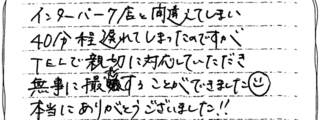 インターパーク店と間違えてしまい
40分程遅れてしまったのですが
TELで親切に対応していただき
無事に撮影することができました☺
本当にありがとうございました!!